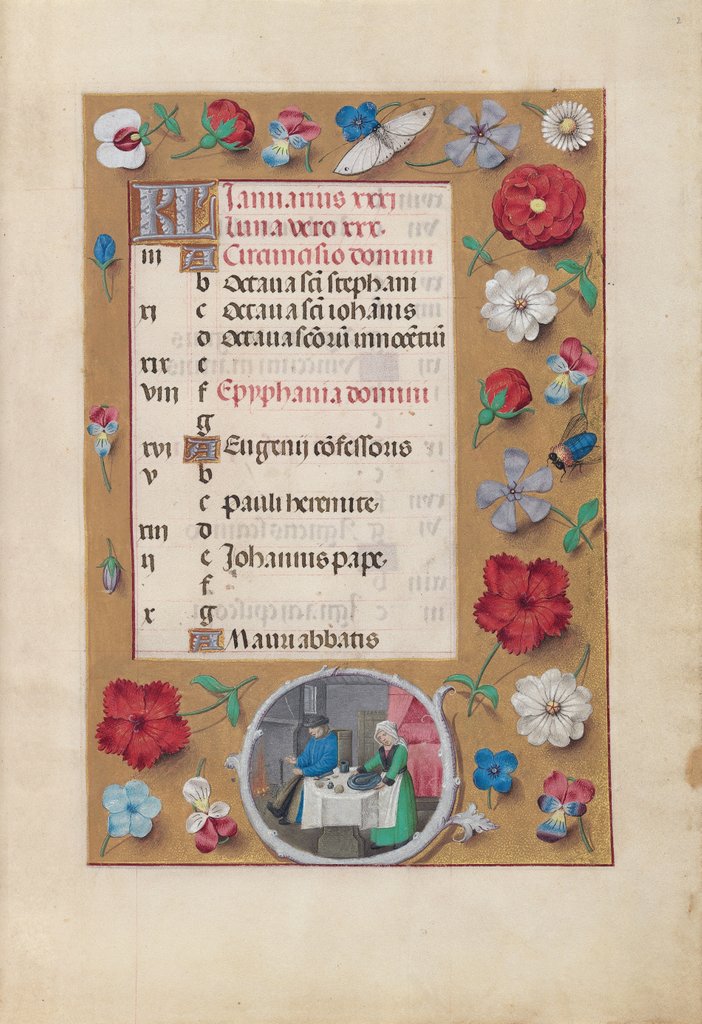 2
KL Januarius xxxj
Luna vero xxx.
iii A Circumcisio domini
b Octaua sci stephani
xj c Octaua sci iohānis
d Octaua scōrū innocētiū
xix e
viii f Epyphania domini
g
xvj A Eugenij cōfessoris
v b
c Pauli heremite.
xiii d
ij e Johannis pape.
f
x g
A Mauri abbatis